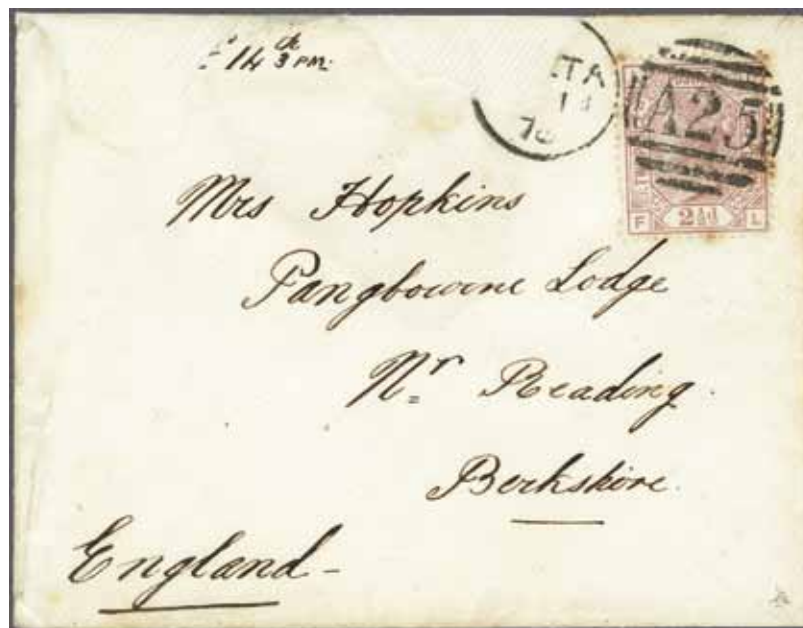 14th 3 PM.
TA
A25
F 2½d L
Mrs Hopkins
Pangbourne Lodge
Nr Reading.
Berkshire.
England-